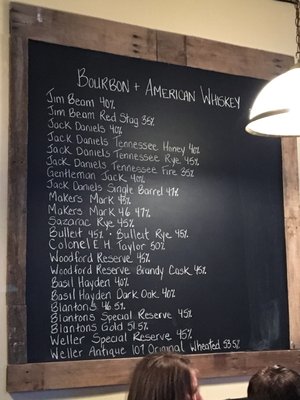 Bourbon + American Whiskey
Jim Beam 40%
Jim Beam Red Stag 35%
Jack Daniels 40%
Jack Daniels Tennessee Honey 40%
Jack Daniels Tennessee Rye 45%
Jack Daniels Tennessee Fire 35%
Gentleman Jack 40%
Jack Daniels Single Barrel 47%
Makers Mark 45%
Makers Mark 46 47%
Sazarac Rye 45%
Bulleit 45% • Bulleit Rye 45%
Colonel E.H. Taylor 50%
Woodford Reserve 45%
Woodford Reserve Brandy Cask 45%
Basil Hayden 40%
Basil Hayden Dark Oak 40%
Blantons 46.5%
Blantons Special Reserve 45%
Blantons Gold 51.5%
Weller Special Reserve 45%
Weller Antique 107 Original Wheated 53.5%